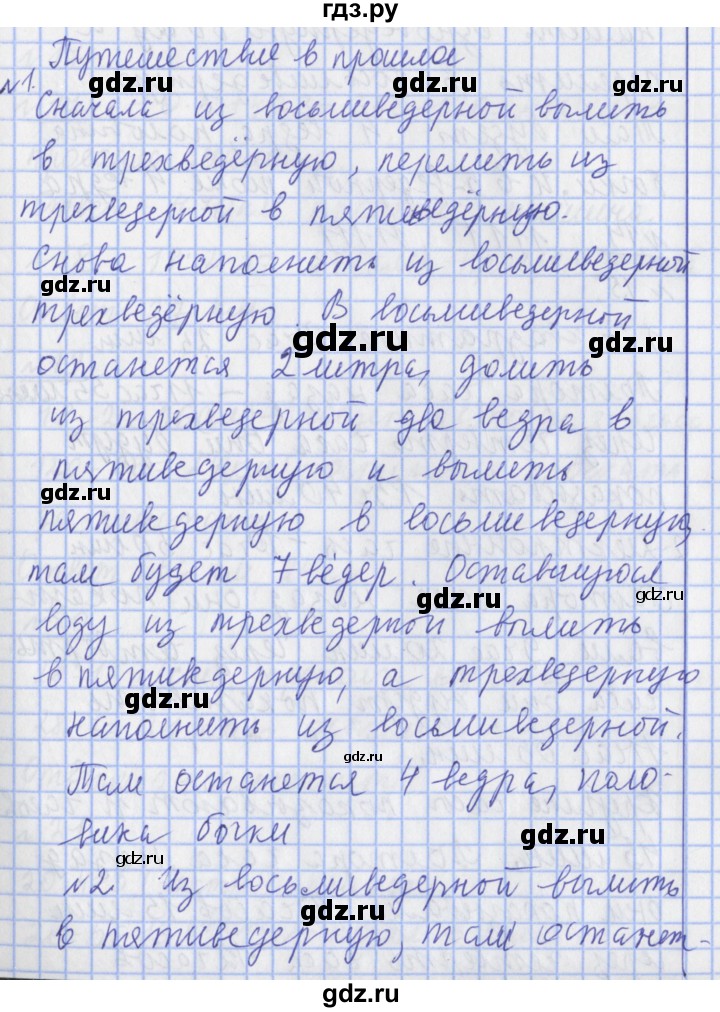 гдз.ру
Путешествие в прошлое
gdz.ru
gdz.ru
№1.
Сначала из восьмиведерной вылить
в трехведёрную, перелить из
трехведерной в пятиведёрную.
Снова наполнить из восьмиведерной
gdz.ru
трехведёрную. В восьмиведерной
gdz.ru
gdz.ru
останется 2 литра, долить
из трехведерной два ведра в
пятиведерную и вылить
gdz.ru
пятиведерную в восьмиведерную,
там будет 7 вёдер. Оставшуюся
gdz.ru
gdz.ru
воду из трехведерной вылить
в пятиведерную, а трехведерную
gdz.ru
наполнить из восьмиведерной.
gdz.ru
Там останется 4 ведра, поло-
вина бочки
gdz.ru
gdz.ru
№2. Из восьмиведерной вылить
gdz.ru
в пятиведерную, там останет-
gdz.ru
gdz.ru